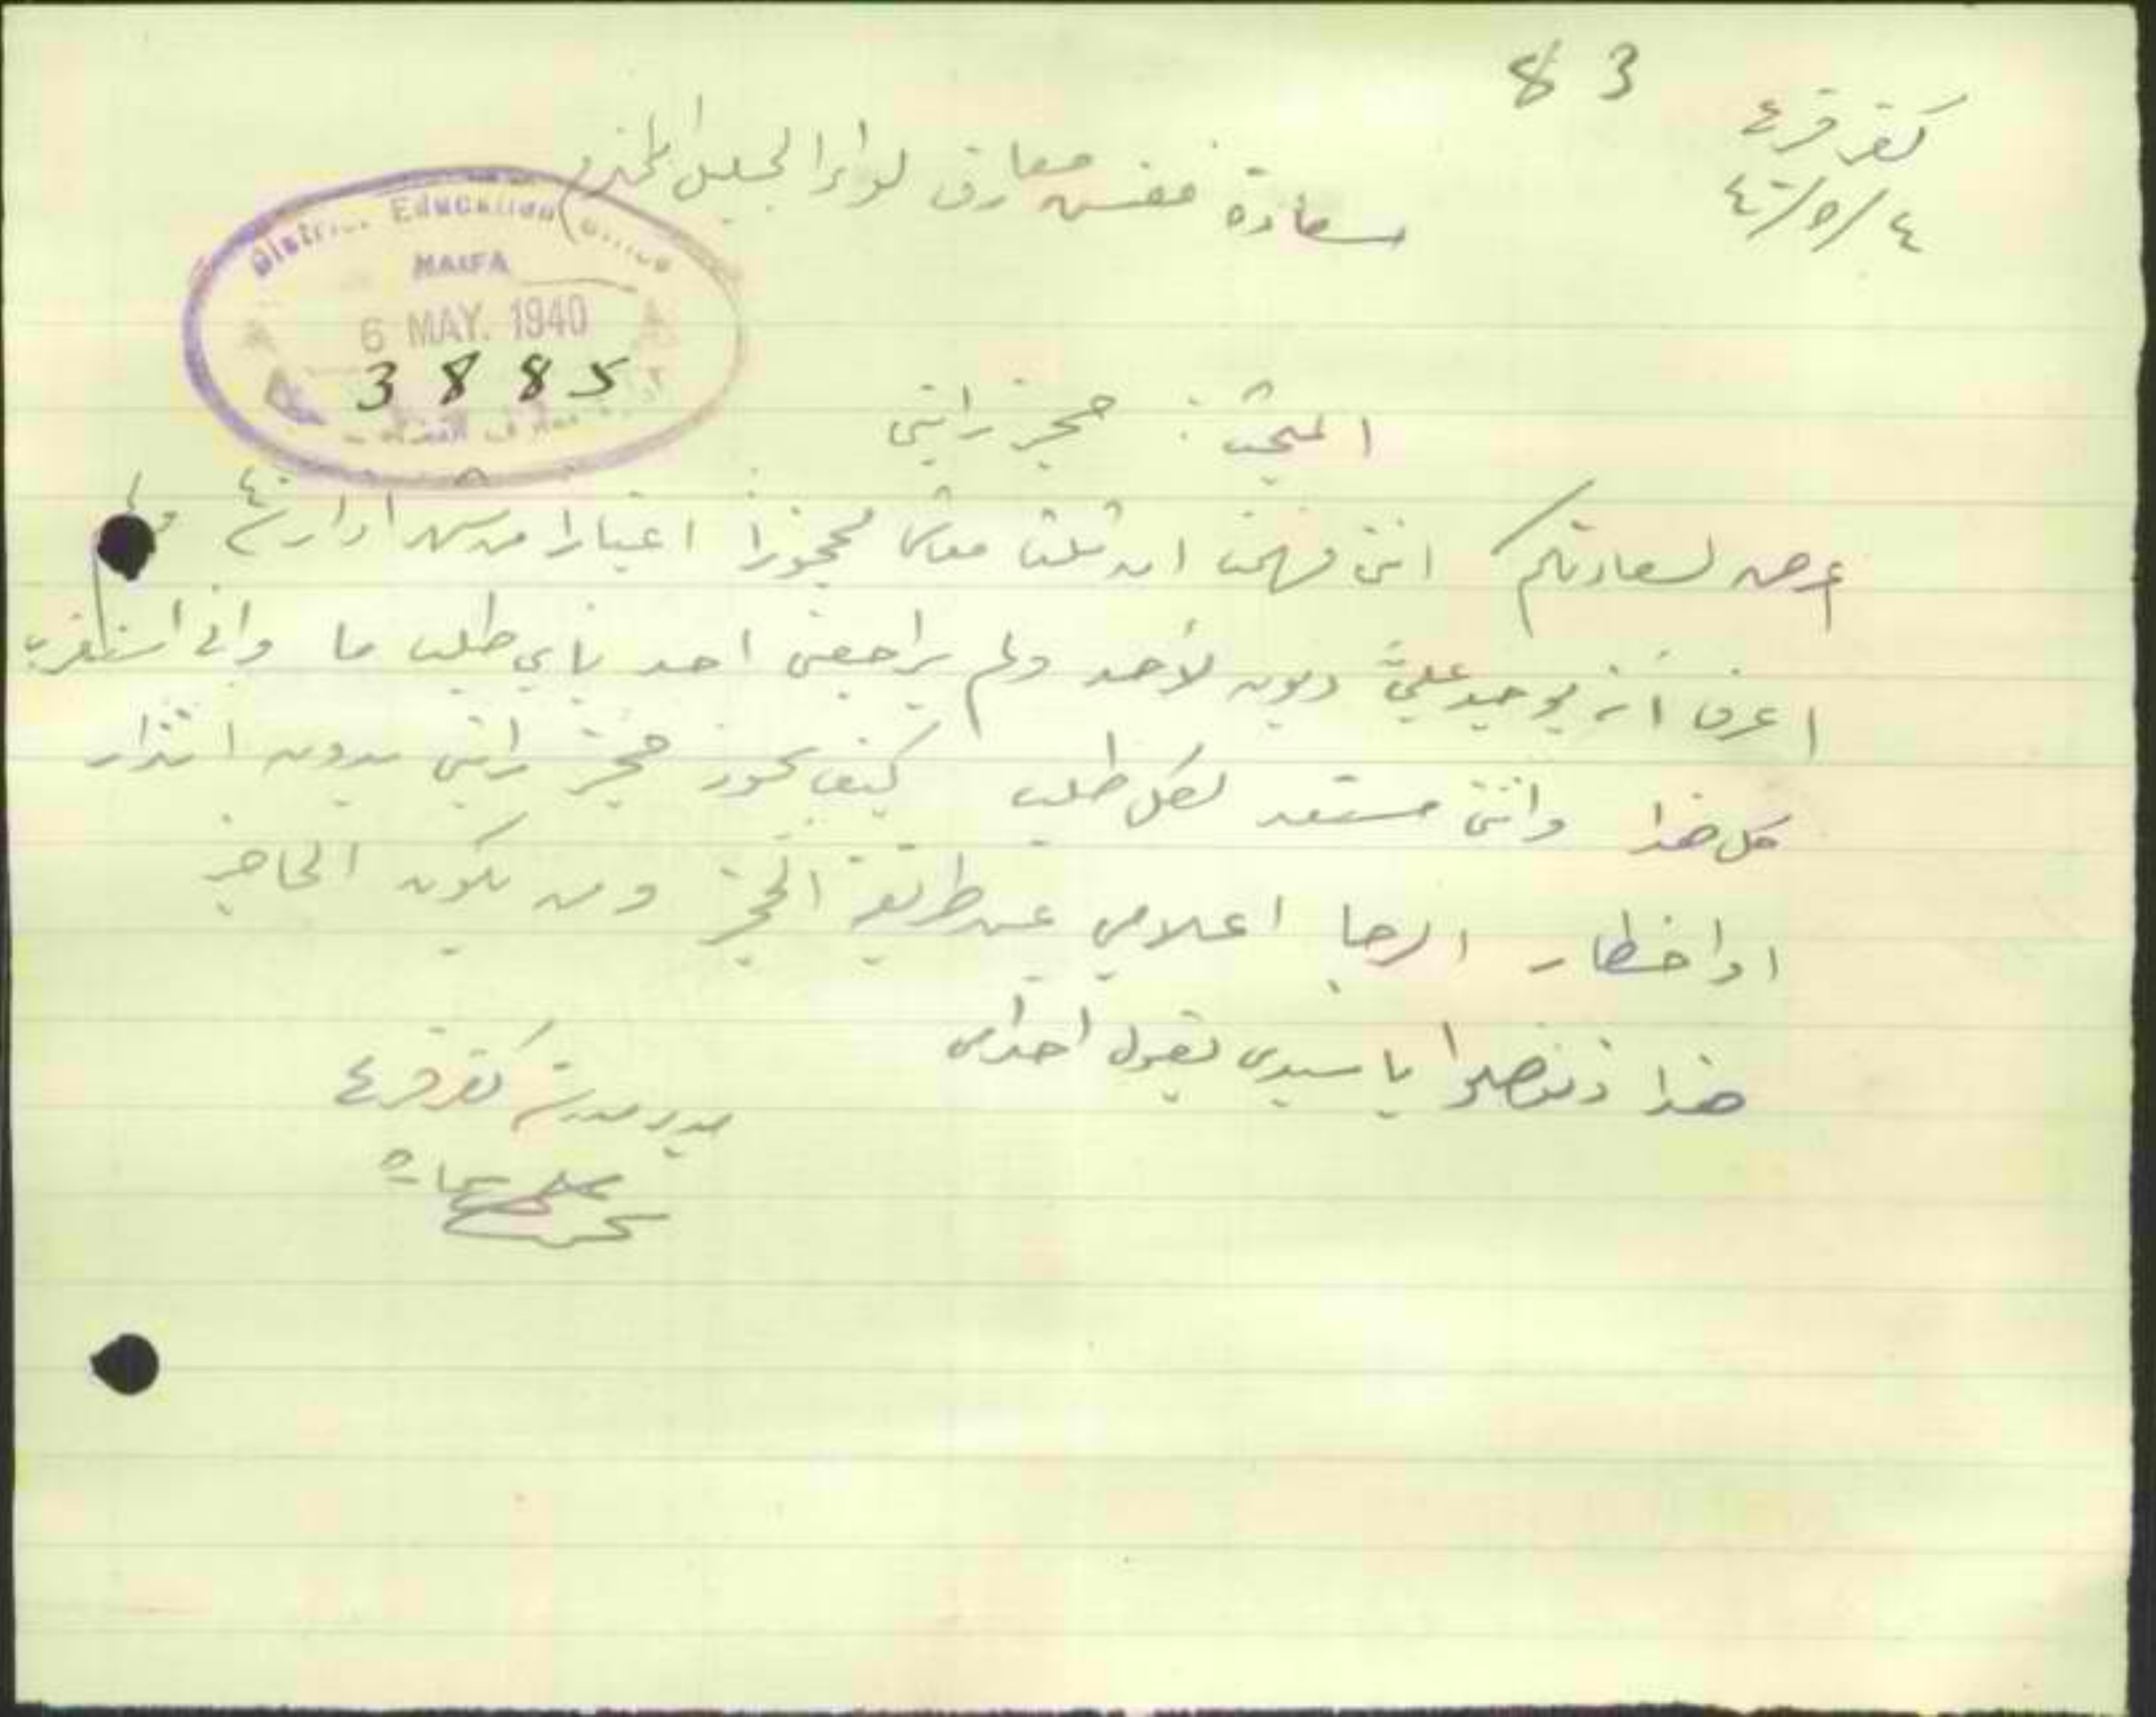 83
كفر قرع
٤/٥/٤٠
سعادة مفتش معارف لواء الجليل المحترم
District Education Office
HAIFA
6 MAY. 1940
3885
المبحث: حجز راتبي
اعرض لسعادتكم انني فهمت ان ثلث معاشي محجوزا اعتبارا من شهر اذار ٤٠ ولا
اعرف أنه يوجد عليّ ديون لأحد ولم يراجعني احد بأي طلب ما واني استغرب
كل هذا وانني مستعد لكل طلب كيف يجوز حجز راتبي بدون انذار
او اخطار الرجا اعلامي عن طريقة الحجز ومن يكون الحاجز
هذا وتفضلوا يا سيدي بقبول احترامي
مدير مدرسة كفر قرع